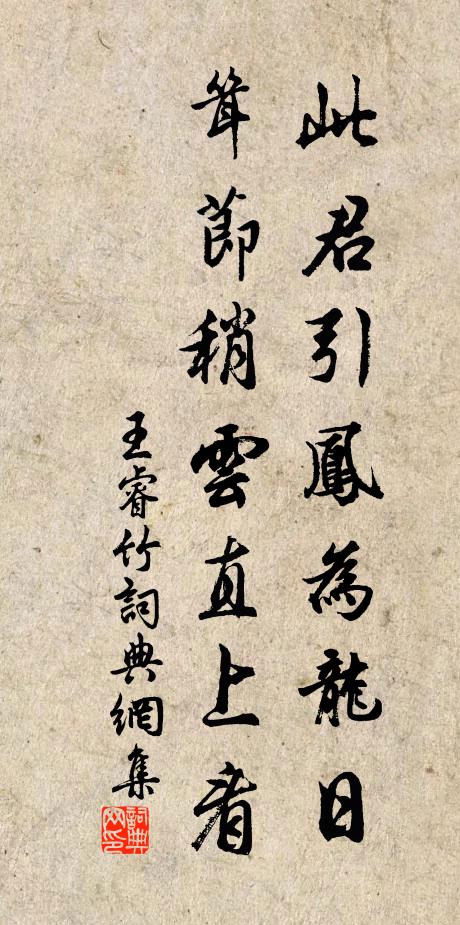 此君引鳳為龍日
聳節稍雲直上看
王睿竹詞典網集
詞典网印